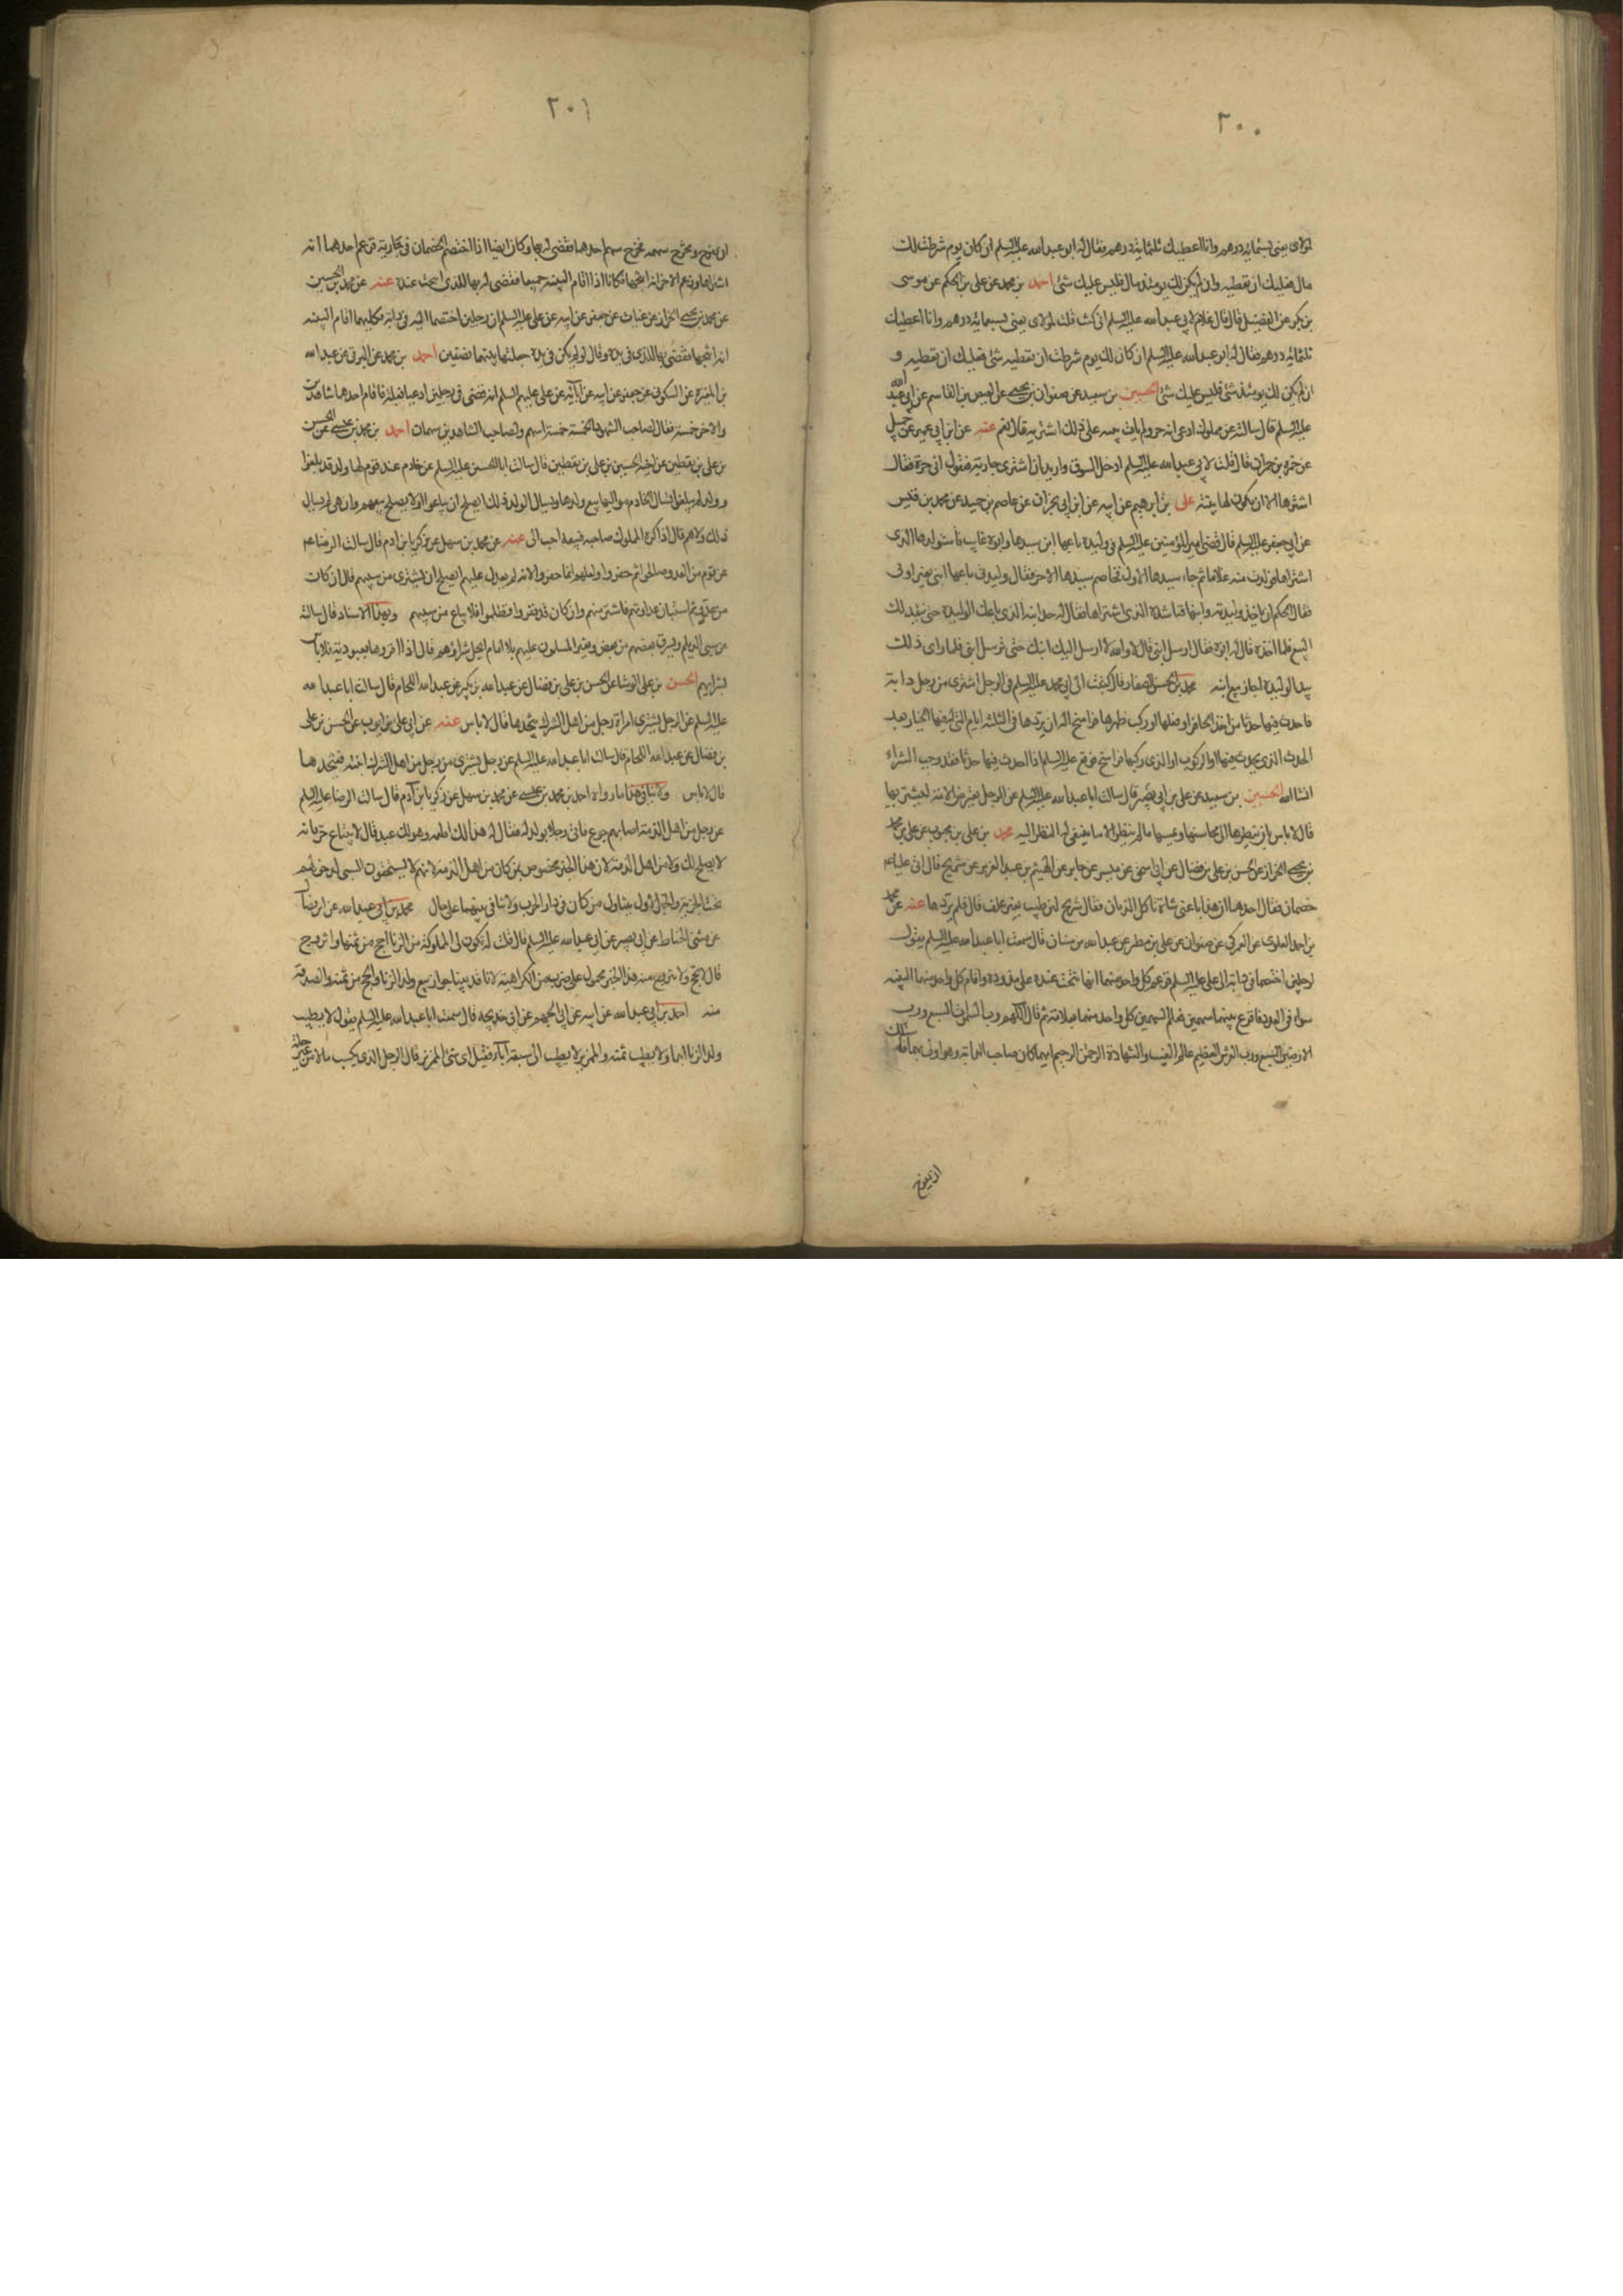 ٢٠٠
لمولاى بعنى بسبعمائة درهم وانا اعطيك ثلثمائة درهم فقال له ابو عبد الله عليه السلم ان كان يوم شرطت لك
مال فعليك ان تعطيه وان لم يكن لك يومئذ مال فليس عليك شئ احمد بن محمد عن على بن الحكم عن موسى
بن بكر عن الفضيل قال قال غلام لابى عبد الله عليه السلم انى كنت قلت لمولاى بعنى بسبعمائة درهم وانا اعطيك
ثلثمائة درهم فقال له ابو عبد الله عليه السلم ان كان لك يوم شرطت ان تعطيه شئ فعليك ان تعطيه و
ان لم يكن لك يومئذ شئ فليس عليك شئ الحسين بن سعيد عن صفوان بن يحيى عن العيص بن القاسم عن ابى عبد الله
عليه السلم قال سالته عن مملوك ادعى انه حر ولم يات ببينة على ذلك اشتريه قال نعم عنه عن ابن ابى عمير عن جميل
عن حمزة بن حمران قال قلت لابى عبد الله عليه السلم ادخل السوق واريد ان اشترى جارية فتقول انى حرة فقال
اشترها الا ان يكون لها بينة على بن ابرهيم عن ابيه عن ابن ابى نجران عن عاصم بن حميد عن محمد بن قيس
عن ابى جعفر عليه السلم قال قضى امير المؤمنين عليه السلم فى وليدة باعها ابن سيدها وابوه غايب فاستولدها الذى
اشتراها فولدت منه غلاما ثم جاء سيدها الاول فخاصم سيدها الاخر فقال وليدتى باعها ابنى بغير اذنى
فقال الحكم ان ياخذ وليدته وابنها فناشده الذى اشتراها فقال له خذ ابنه الذى باعك الوليدة حتى ينفذ لك
البيع فلما اخذه قال له ابوه فقال ارسل ابنى قال لا والله لا ارسل اليك ابنك حتى ترسل ابنى فلما راى ذلك
سيد الوليدة اجاز بيع ابنه محمد بن الحسن الصفار قال كتبت الى ابى محمد عليه السلم فى الرجل اشترى من رجل دابة
فاحدث فيها حدثا من اخذ الحافر او نعلها او ركب ظهرها فراسخ اله ان يردها فى الثلثة ايام التى له فيها الخيار بعد
الحدث الذى يحدث فيها او الركوب الذى ركبها فراسخ فوقع عليه السلم اذا احدث فيها حدثا فقد وجب الشراء
انشاالله الحسين بن سعيد عن على بن ابى بصير قال سالت ابا عبد الله عليه السلم عن الرجل يعترض الامة ليشتريها
قال لا باس بان ينظر الى محاسنها ويمسها ما لم ينظر الى ما لا ينبغى له النظر اليه محمد بن على بن محبوب عن على بن محمد
بن يحيى الخزاز عن الحسن بن على بن فضال عن ابى اسحق عن ميسر عن جابر عن الهيثم بن عبد العزيز عن شريح قال اتى عليا عم
خصمان فقال احدهما ان هذا باعنى شاة تاكل الذبان فقال شريح لبن طيب بغير علف قال فلم يردها عنه عن محمد
بن احمد العلوى عن العمركى عن صفوان عن على بن مطر عن عبد الله بن سنان قال سمعت ابا عبد الله عليه السلم يقول
ان رجلين اختصما فى دابة الى على عليه السلم فزعم كل واحد منهما انها نتجت عنده على مذوده واقام كل واحد منهما البينة
سواء فى العدد فاقرع بينهما سهمين فعلم السهمين كل واحد منهما بعلامة ثم قال اللهم رب السموات السبع ورب
الارضين السبع ورب العرش العظيم عالم الغيب والشهادة الرحمن الرحيم ايهما كان صاحب الدابة وهو اولى بها فاسئلك
ان يقرع
٢٠١
ان يقرع ويخرج سهمه فخرج سهم احدهما فقضى له بها وكان ايضا اذا اختصم الخصمان فى جارية فزعم احدهما انه
اشتراها وزعم الاخر انه انتجها فكانا اذا اقاما البينة جميعا فقضى له بها للذى انتجت عنده عنه عن محمد بن الحسين
عن محمد بن يحيى الخزاز عن غياث عن جعفر عن ابيه عن على عليه السلم ان رجلين اختصما اليه فى دابة وكليهما اقام البينة
انه انتجها فقضى بها للذى فى يده وقال لو لم يكن فى يده جعلتها بينهما نصفين احمد بن محمد عن البرقى عن عبد الله
بن المغيرة عن السكونى عن جعفر عن ابيه عن آبائه عن على عليهم السلم انه قضى فى رجلين ادعيا بغلة فاقام احدهما شاهدين
والاخر خمسة فقال لصاحب الشهود الخمسة خمسة اسهم ولصاحب الشاهدين سهمان احمد بن محمد بن عيسى عن الحسن
بن على بن يقطين عن اخيه الحسين بن على بن يقطين قال سالت ابا الحسن عليه السلم عن خادم عند قوم لها ولد قد بلغوا
وولد لم يبلغوا تسال الخادم مواليها بيع ولدها ويسال الولد ذلك ايصلح ان يباعوا او لا يصلح بيعهم وان هى لم تسال
ذلك ولا هم قال اذا كره المملوك صاحبه فبيعه احب الى عنه عن محمد بن سهل عن زكريا بن ادم قال سالت الرضا عم
عن قوم من العدو صالحوا ثم خفروا ولعلهم انما خفروا لانه لم يعدل عليهم ايصلح ان يشترى من سبيهم قال ان كان
من عدو قد استبان عداوتهم فاشتر منهم وان كان قد نفروا وظلموا فلا يباع من سبيهم وبهذا الاسناد قال سالته
عن سبى الديلم ويسرق بعضهم من بعض ويغير المسلمون عليهم بلا امام ايحل شراؤهم قال اذا اقروا بالعبودية فلا باس
بشرائهم الحسن بن على الوشا عن الحسن بن على بن فضال عن عبد الله بن بكير عن عبد الله اللحام قال سالت ابا عبد الله
عليه السلم عن الرجل يشترى امراة رجل من اهل الشرك يتخذها قال لا باس عنه عن ابى على بن ايوب عن الحسن بن على
بن فضال عن عبد الله اللحام قال سالت ابا عبد الله عليه السلم عن رجل يشترى من رجل من اهل الشرك ابنته فيتخذها
قال لا باس ولا ينافى هذا ما رواه احمد بن محمد بن عيسى عن محمد بن سهل عن زكريا بن آدم قال سالت الرضا عليه السلم
عن رجل من اهل الذمة اصابهم جوع فاتى رجلا بولد له فقال له هذا لك اطعمه وهو لك عبد قال لا يبتاع حر فانه
لا يصلح لك ولا من اهل الذمة لان هذا الخبر مخصوص بمن كان من اهل الذمة لانهم لا يستحقون السبى لدخولهم
تحت الجزية والخبر الاول يتناول من كان فى دار الحرب ولا تنافى بينهما على حال محمد بن ابى عبد الله عن
عن مثنى الحناط عن ابى بصير عن ابى عبد الله عليه السلم قال قلت له تكون لى المملوكة من الزنا احج من ثمنها واتزوج
قال لا تحج ولا تتزوج منه هذا الخبر محمول على ضرب من الكراهية لانا قد بينا جواز بيع ولد الزنا والحج من ثمنه والصدقة
منه احمد بن ابى عبد الله عن ابيه عن ابى الجهم عن ابى خديجة قال سمعت ابا عبد الله عليه السلم يقول لا يطيب
ولد الزنا ابدا ولا يطيب ثمنه والممزير لا يطيب الى سبعة آباء فقيل اى شئ الممزير قال الرجل الذى يكسب مالا من غير حله